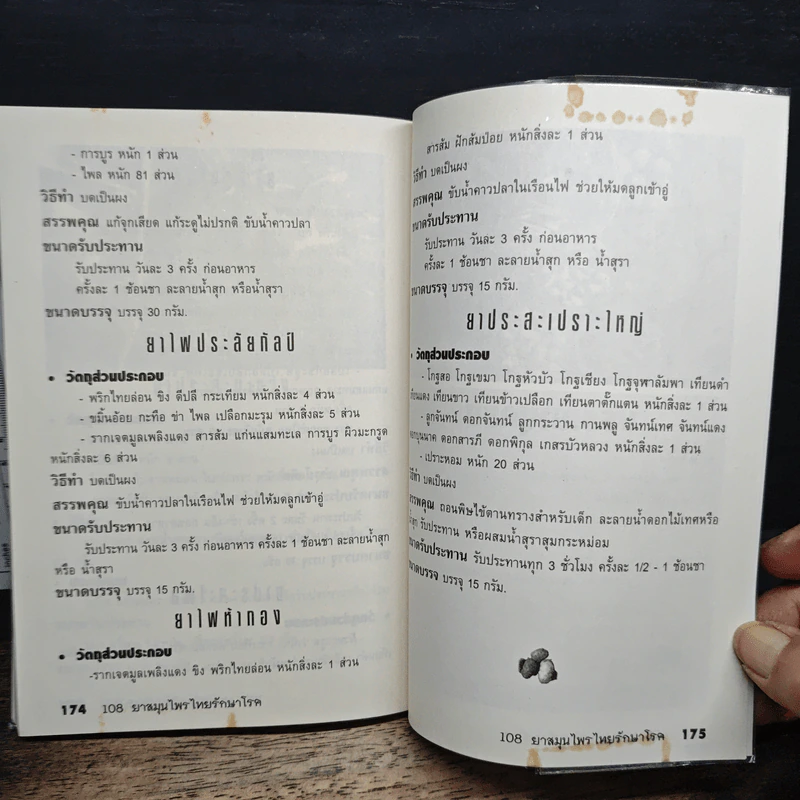 - การบูร หนัก 1 ส่วน
- ไพล หนัก 81 ส่วน
วิธีทำ บดเป็นผง
สรรพคุณ แก้จุกเสียด แก้ระดูไม่ปรกติ ขับน้ำคาวปลา
ขนาดรับประทาน
รับประทาน วันละ 3 ครั้ง ก่อนอาหาร
ครั้งละ 1 ช้อนชา ละลายน้ำสุก หรือน้ำสุรา
ขนาดบรรจุ บรรจุ 30 กรัม.
ยาไฟประลัยกัลป์
• วัตถุส่วนประกอบ
- พริกไทยล่อน ขิง ดีปลี กระเทียม หนักสิ่งละ 4 ส่วน
- ขมิ้นอ้อย กะทือ ข่า ไพล เปลือกมะรุม หนักสิ่งละ 5 ส่วน
- รากเจตมูลเพลิงแดง สารส้ม แก่นแสมทะเล การบูร ผิวมะกรูด
หนักสิ่งละ 6 ส่วน
วิธีทำ บดเป็นผง
สรรพคุณ ขับน้ำคาวปลาในเรือนไฟ ช่วยให้มดลูกเข้าอู่
ขนาดรับประทาน
รับประทาน วันละ 3 ครั้ง ก่อนอาหาร ครั้งละ 1 ช้อนชา ละลายน้ำสุก
หรือ น้ำสุรา
ขนาดบรรจุ บรรจุ 15 กรัม.
ยาไฟห้ากอง
• วัตถุส่วนประกอบ
-รากเจตมูลเพลิงแดง ขิง พริกไทยล่อน หนักสิ่งละ 1 ส่วน
174 108 ยาสมุนไพรไทยรักษาโรค
สารส้ม ฝักส้มป่อย หนักสิ่งละ 1 ส่วน
วิธีทำ บดเป็นผง
สรรพคุณ ขับน้ำคาวปลาในเรือนไฟ ช่วยให้มดลูกเข้าอู่
ขนาดรับประทาน
รับประทาน วันละ 3 ครั้ง ก่อนอาหาร
ครั้งละ 1 ช้อนชา ละลายน้ำสุก หรือ น้ำสุรา
ขนาดบรรจุ บรรจุ 15 กรัม.
ยาประสะเปราะใหญ่
• วัตถุส่วนประกอบ
- โกฐสอ โกฐเขมา โกฐหัวบัว โกฐเชียง โกฐจุฬาลัมพา เทียนดำ
เทียนแดง เทียนขาว เทียนข้าวเปลือก เทียนตาตั๊กแตน หนักสิ่งละ 1 ส่วน
- ลูกจันทน์ ดอกจันทน์ ลูกกระวาน กานพลู จันทน์เทศ จันทน์แดง
ดอกบุนนาค ดอกสารภี ดอกพิกุล เกสรบัวหลวง หนักสิ่งละ 1 ส่วน
- เปราะหอม หนัก 20 ส่วน
วิธีทำ บดเป็นผง
สรรพคุณ ถอนพิษไข้ตานทรางสำหรับเด็ก ละลายน้ำดอกไม้เทศหรือ
น้ำสุก รับประทาน หรือผสมน้ำสุราสุมกระหม่อม
ขนาดรับประทาน รับประทานทุก 3 ชั่วโมง ครั้งละ 1/2 - 1 ช้อนชา
ขนาดบรรจุ บรรจุ 15 กรัม.
108 ยาสมุนไพรไทยรักษาโรค 175